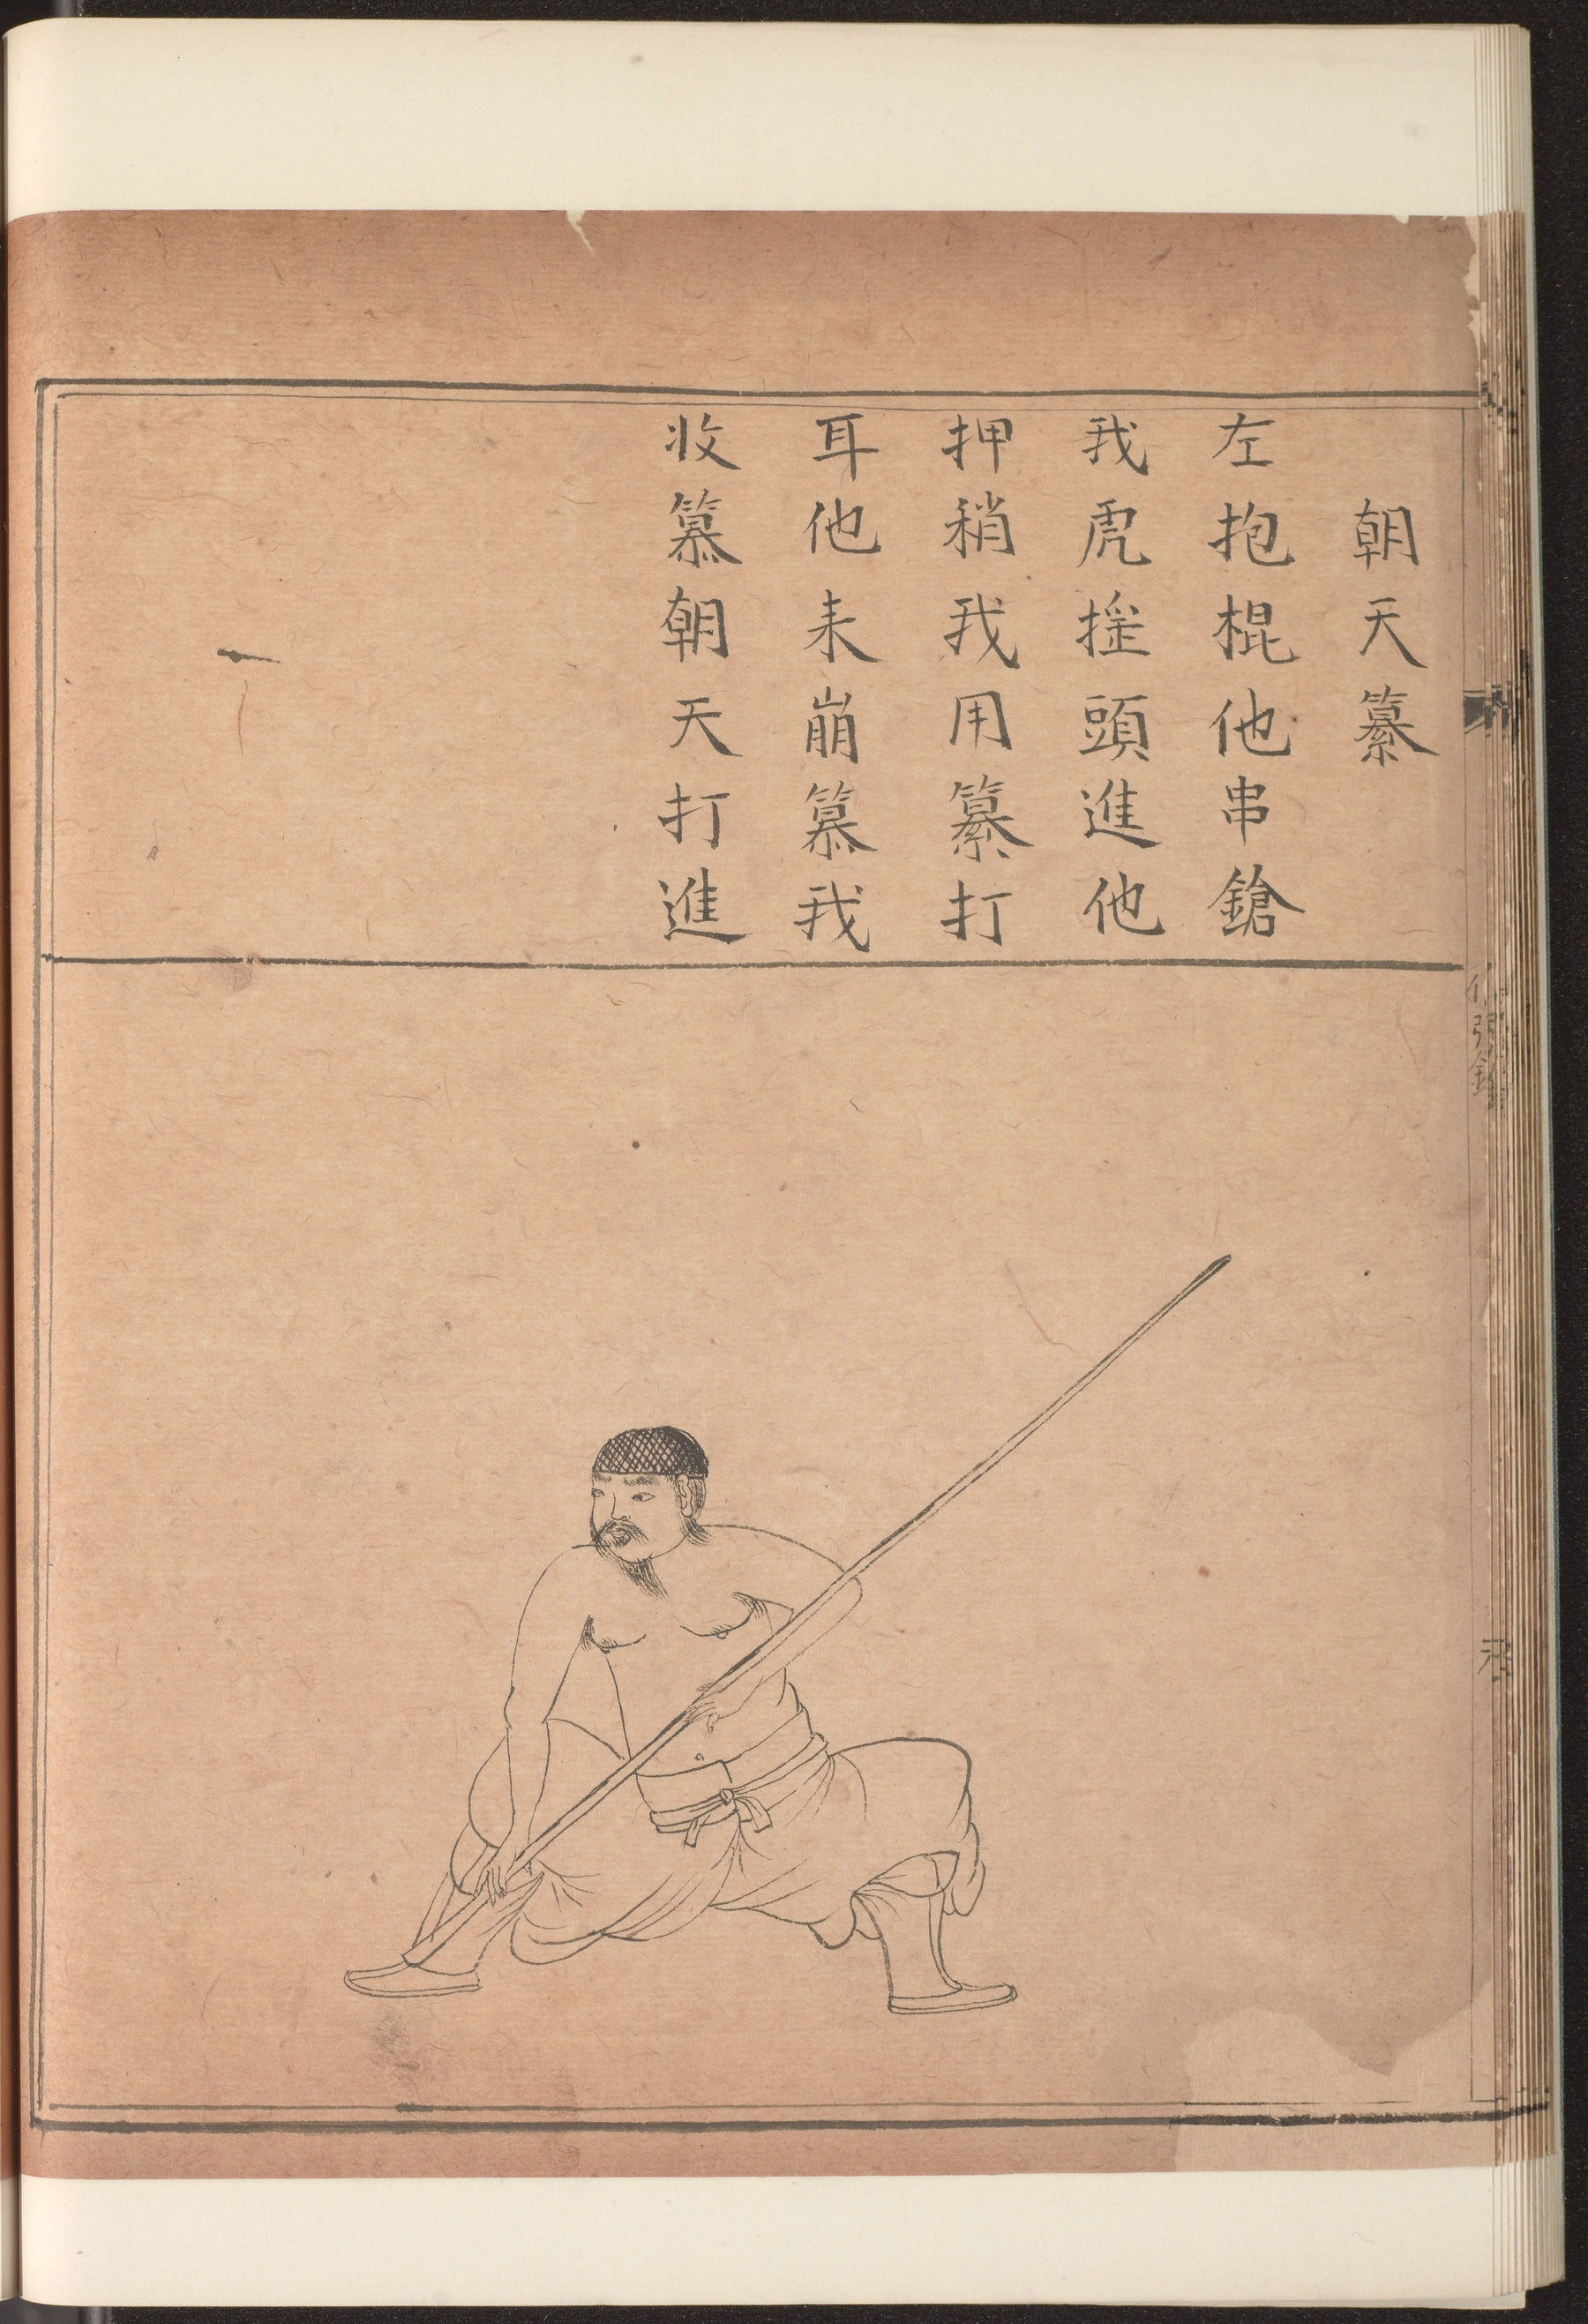 朝天纂
左抱棍他串鎗
我虎揺頭進他
押稍我用纂打
耳他来崩纂我
收纂朝天打進